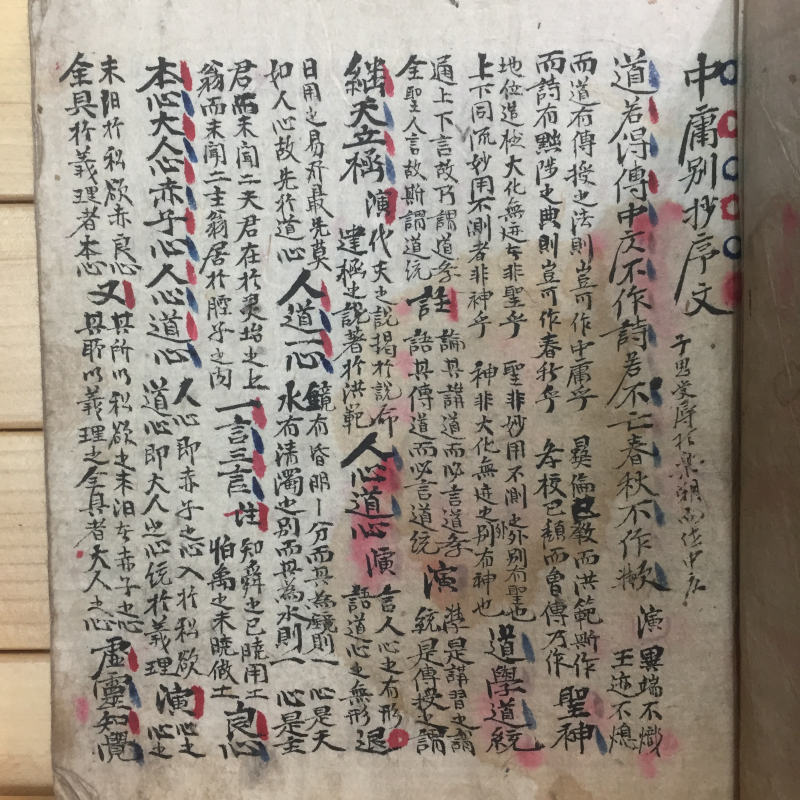 中庸別抄序文 子思受辱於樂朔而作中庸
道若得傳中庸不作詩若不亡春秋不作歟 演 異端不熾
王迹不熄
而道有傳授之法則豈可作中庸乎 彛倫已斁而洪範斯作
而詩有黜陟之典則豈可作春秋乎 孝校已頹而曾傳乃作 聖神
地位造極大化無迹者非聖乎 聖非妙用不測之外別有聖也
上下同流妙用不測者非神乎 神非大化無迹之外別有神也 道學道統
通上下言故乃謂道學 註 論其講道而必言道學 演 學是講習之謂
全聖人言故斯謂道統 語其傳道而必言道統 統是傳授之謂
繼天立極 演 代天之說揭於說命 人心道心 演 言人心之有形
建極之說著於洪範 語道心之無形 退
日用之易所最先莫 人道一心 鏡有昏明之分而其為鏡則一 心是天
如人心故先於道心 水有淸濁之別而其為水則一 心是主
君而未聞二天君在於灵坮之上 一言三言 註 知舜之已曉用工
翁而未聞二主翁居於腔子之內 怕禹之未曉做工 良心
本心大人心赤子心人心道心 人心即赤子之心入於私欲 演 心之
道心即大人之心統於義理 心之
未汨於私欲亦良心 又 其所以私欲之未汨者赤子之心
全具於義理者本心 其所以義理之全具者大人之心 虛靈知覺